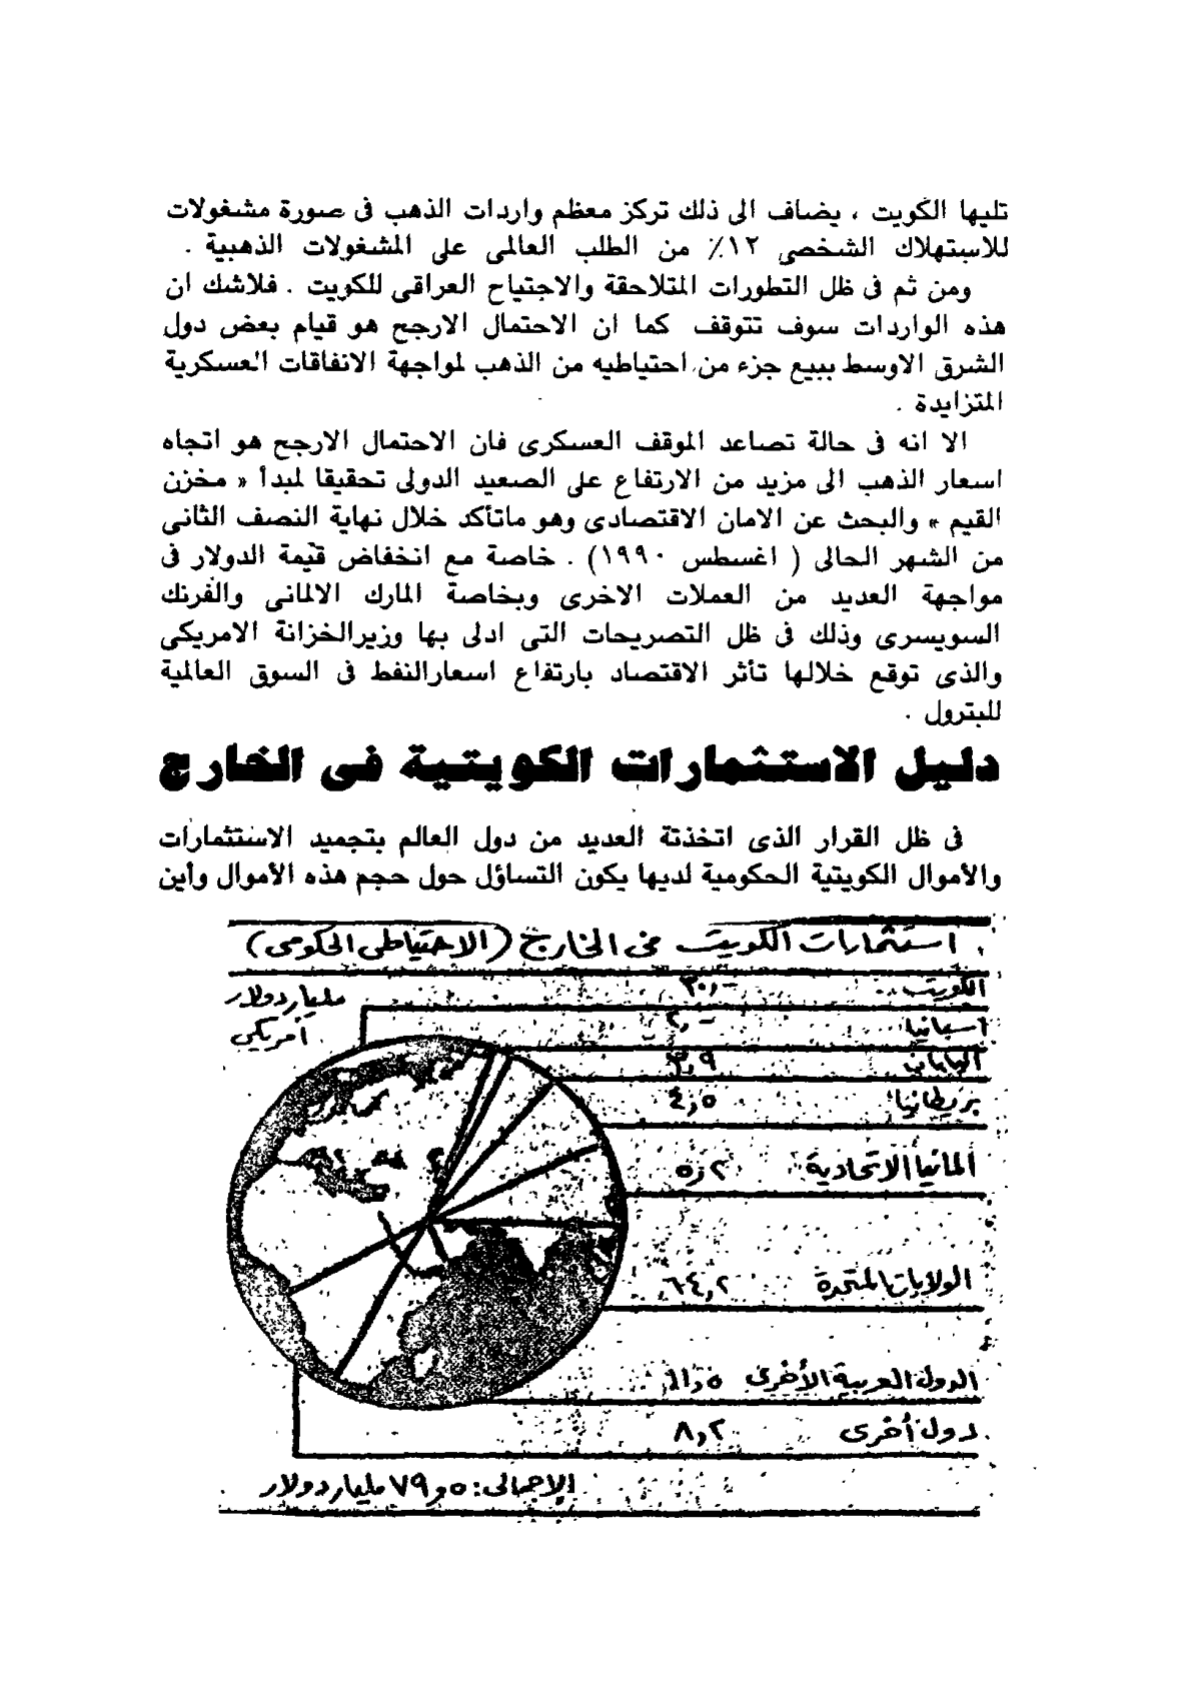 تليها الكويت ، يضاف الى ذلك تركز معظم واردات الذهب فى صورة مشغولات
للاستهلاك الشخصى ١٢٪ من الطلب العالمى على المشغولات الذهبية .
ومن ثم فى ظل التطورات المتلاحقة والاجتياح العراقى للكويت . فلاشك ان
هذه الواردات سوف تتوقف كما ان الاحتمال الارجح هو قيام بعض دول
الشرق الاوسط ببيع جزء من احتياطيه من الذهب لمواجهة الانفاقات العسكرية
المتزايدة .
الا انه فى حالة تصاعد الموقف العسكرى فان الاحتمال الارجح هو اتجاه
اسعار الذهب الى مزيد من الارتفاع على الصعيد الدولى تحقيقا لمبدأ « مخزن
القيم » والبحث عن الامان الاقتصادى وهو ماتأكد خلال نهاية النصف الثانى
من الشهر الحالى ( اغسطس ١٩٩٠) . خاصة مع انخفاض قيمة الدولار فى
مواجهة العديد من العملات الاخرى وبخاصة المارك الالمانى والفرنك
السويسرى وذلك فى ظل التصريحات التى ادلى بها وزيرالخزانة الامريكى
والذى توقع خلالها تأثر الاقتصاد بارتفاع اسعارالنفط فى السوق العالمية
للبترول .
دليل الاستثمارات الكويتية فى الخارج
فى ظل القرار الذى اتخذتة العديد من دول العالم بتجميد الاستثمارات
والأموال الكويتية الحكومية لديها يكون التساؤل حول حجم هذه الأموال وأين
استثمارات الكويت فى الخارج (الاحتياطى الحكومى)
مليار دولار
أمريكي
الكويت ٣٠,-
اسبانيا ٢,-
اليابان ٣,٩
بريطانيا ٤,٥
المانيا الاتحادية ٥,٢
الولايات المتحدة
الدول العربية الأخرى
دول أخرى ٨,٢
الإجمالى: ٧٩,٥ مليار دولار